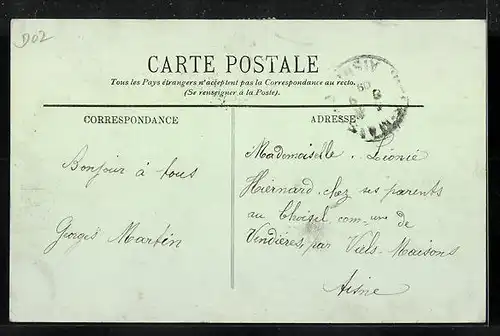 D02
CARTE POSTALE
Tous les Pays étrangers n'acceptent pas la Correspondance au recto.
(Se renseigner à la Poste.)
CORRESPONDANCE
ADRESSE
AISNE
Bonjour à tous
Georges Martin
Mademoiselle Léonie
Hiernard chez ses parents
au Choisel com-une de
Vendières, par Viels-Maisons
Aisne